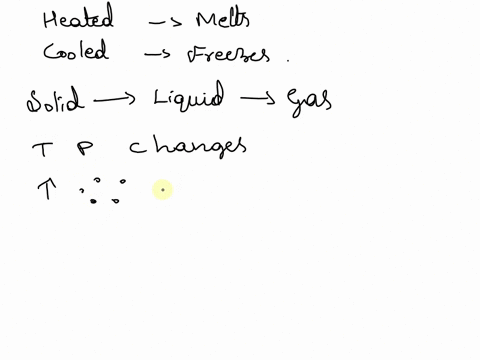 Heated → Melts
Cooled → Freezes .
Solid → Liquid → Gas
T P changes
↑